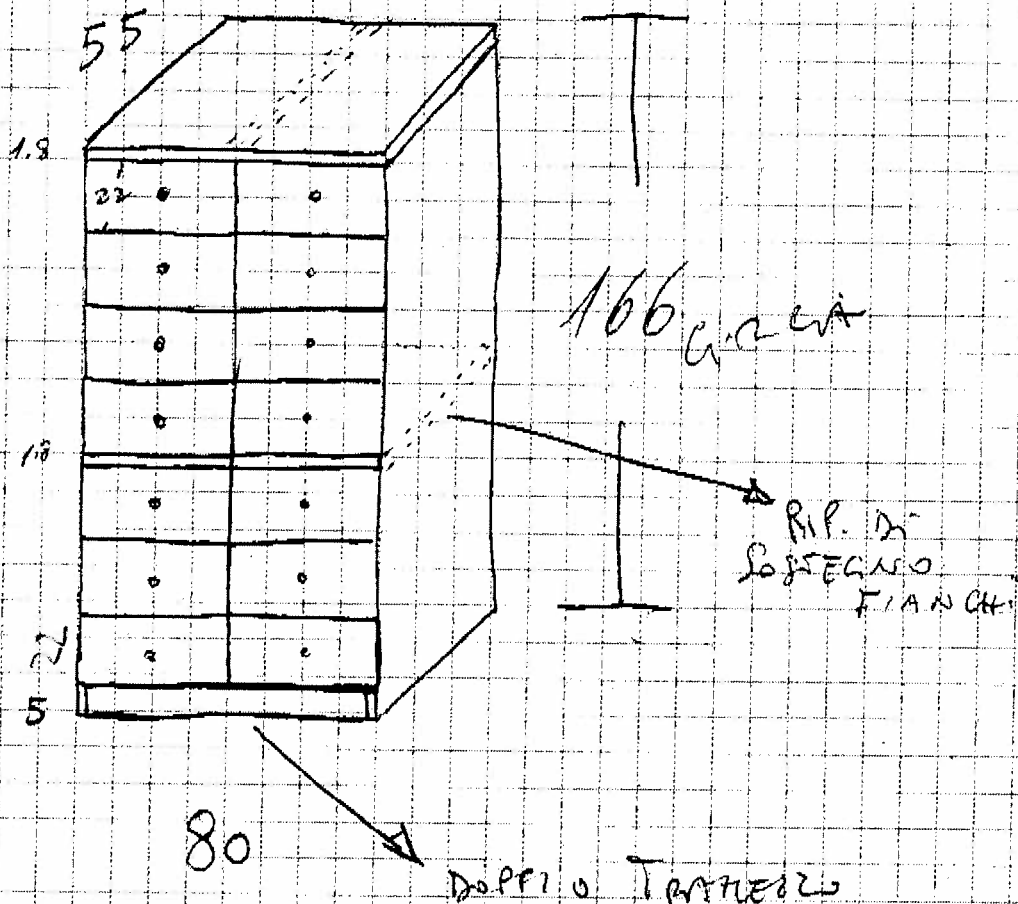 55
1.8
22
166 CIRCA
1.8
RIP. DI
SOSTEGNO
FIANCHI
22
5
80
DOPPIO TRAMEZZO